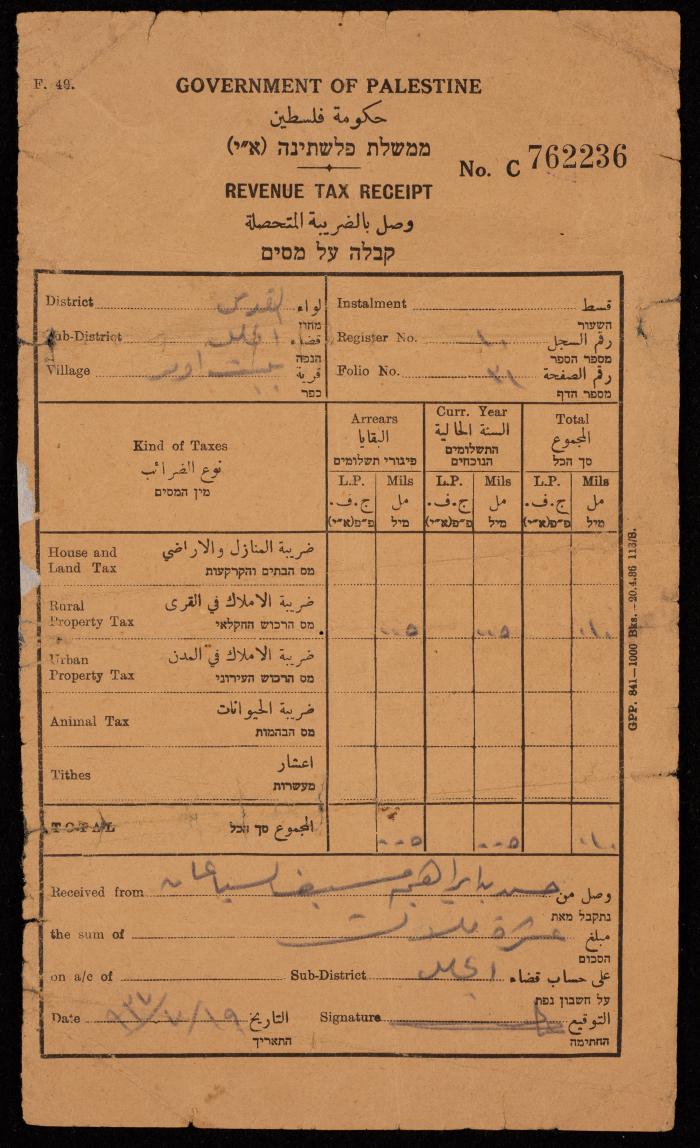 F. 49.
GOVERNMENT OF PALESTINE
حكومة فلسطين
ממשלת פלשתינה (א״י)
No. C 762236
REVENUE TAX RECEIPT
وصل بالضريبة المتحصلة
קבלה על מסים
District القدس لواء
מחוז
Sub-District الخليل قضاء
הנפה
Village قرية
כפר
Instalment قسط
השעור
Register No. ١٠ رقم السجل
מספר הספר
Folio No. رقم الصفحة
מספר הדף
Kind of Taxes
نوع الضرائب
מין המסים
Arrears
البقايا
פיגורי תשלומים
Curr. Year
السنة الحالية
התשלומים
הנוכחים
Total
المجموع
סך הכל
L.P. Mils L.P. Mils L.P. Mils
ج.ف. مل ج.ف. مل ج.ف. مل
פ״פ(א״י) מיל פ״פ(א״י) מיל פ״פ(א״י) מיל
House and ضريبة المنازل والاراضي
Land Tax מס הבתים והקרקעות
Rural ضريبة الاملاك في القرى
Property Tax מס הרכוש החקלאי ٠٠٥ ٠٠٥ ٠١٠
Urban ضريبة الاملاك في المدن
Property Tax מס הרכוש העירוני
Animal Tax ضريبة الحيوانات
מס הבהמות
Tithes اعشار
מעשרות
TOTAL المجموع סך הכל ٠٠٥ ٠٠٥ ٠١٠
GPP. 841—1000 Bks.—20.4.36 113/B.
Received from ابراهيم وصل من
נתקבל מאת
the sum of عشرة ملات مبلغ
הסכום
on a/c of Sub-District الخليل على حساب قضاء
על חשבון נפת
Date ١٩/٧/٩٣٧ التاريخ Signature التوقيع
התאריך החתימה